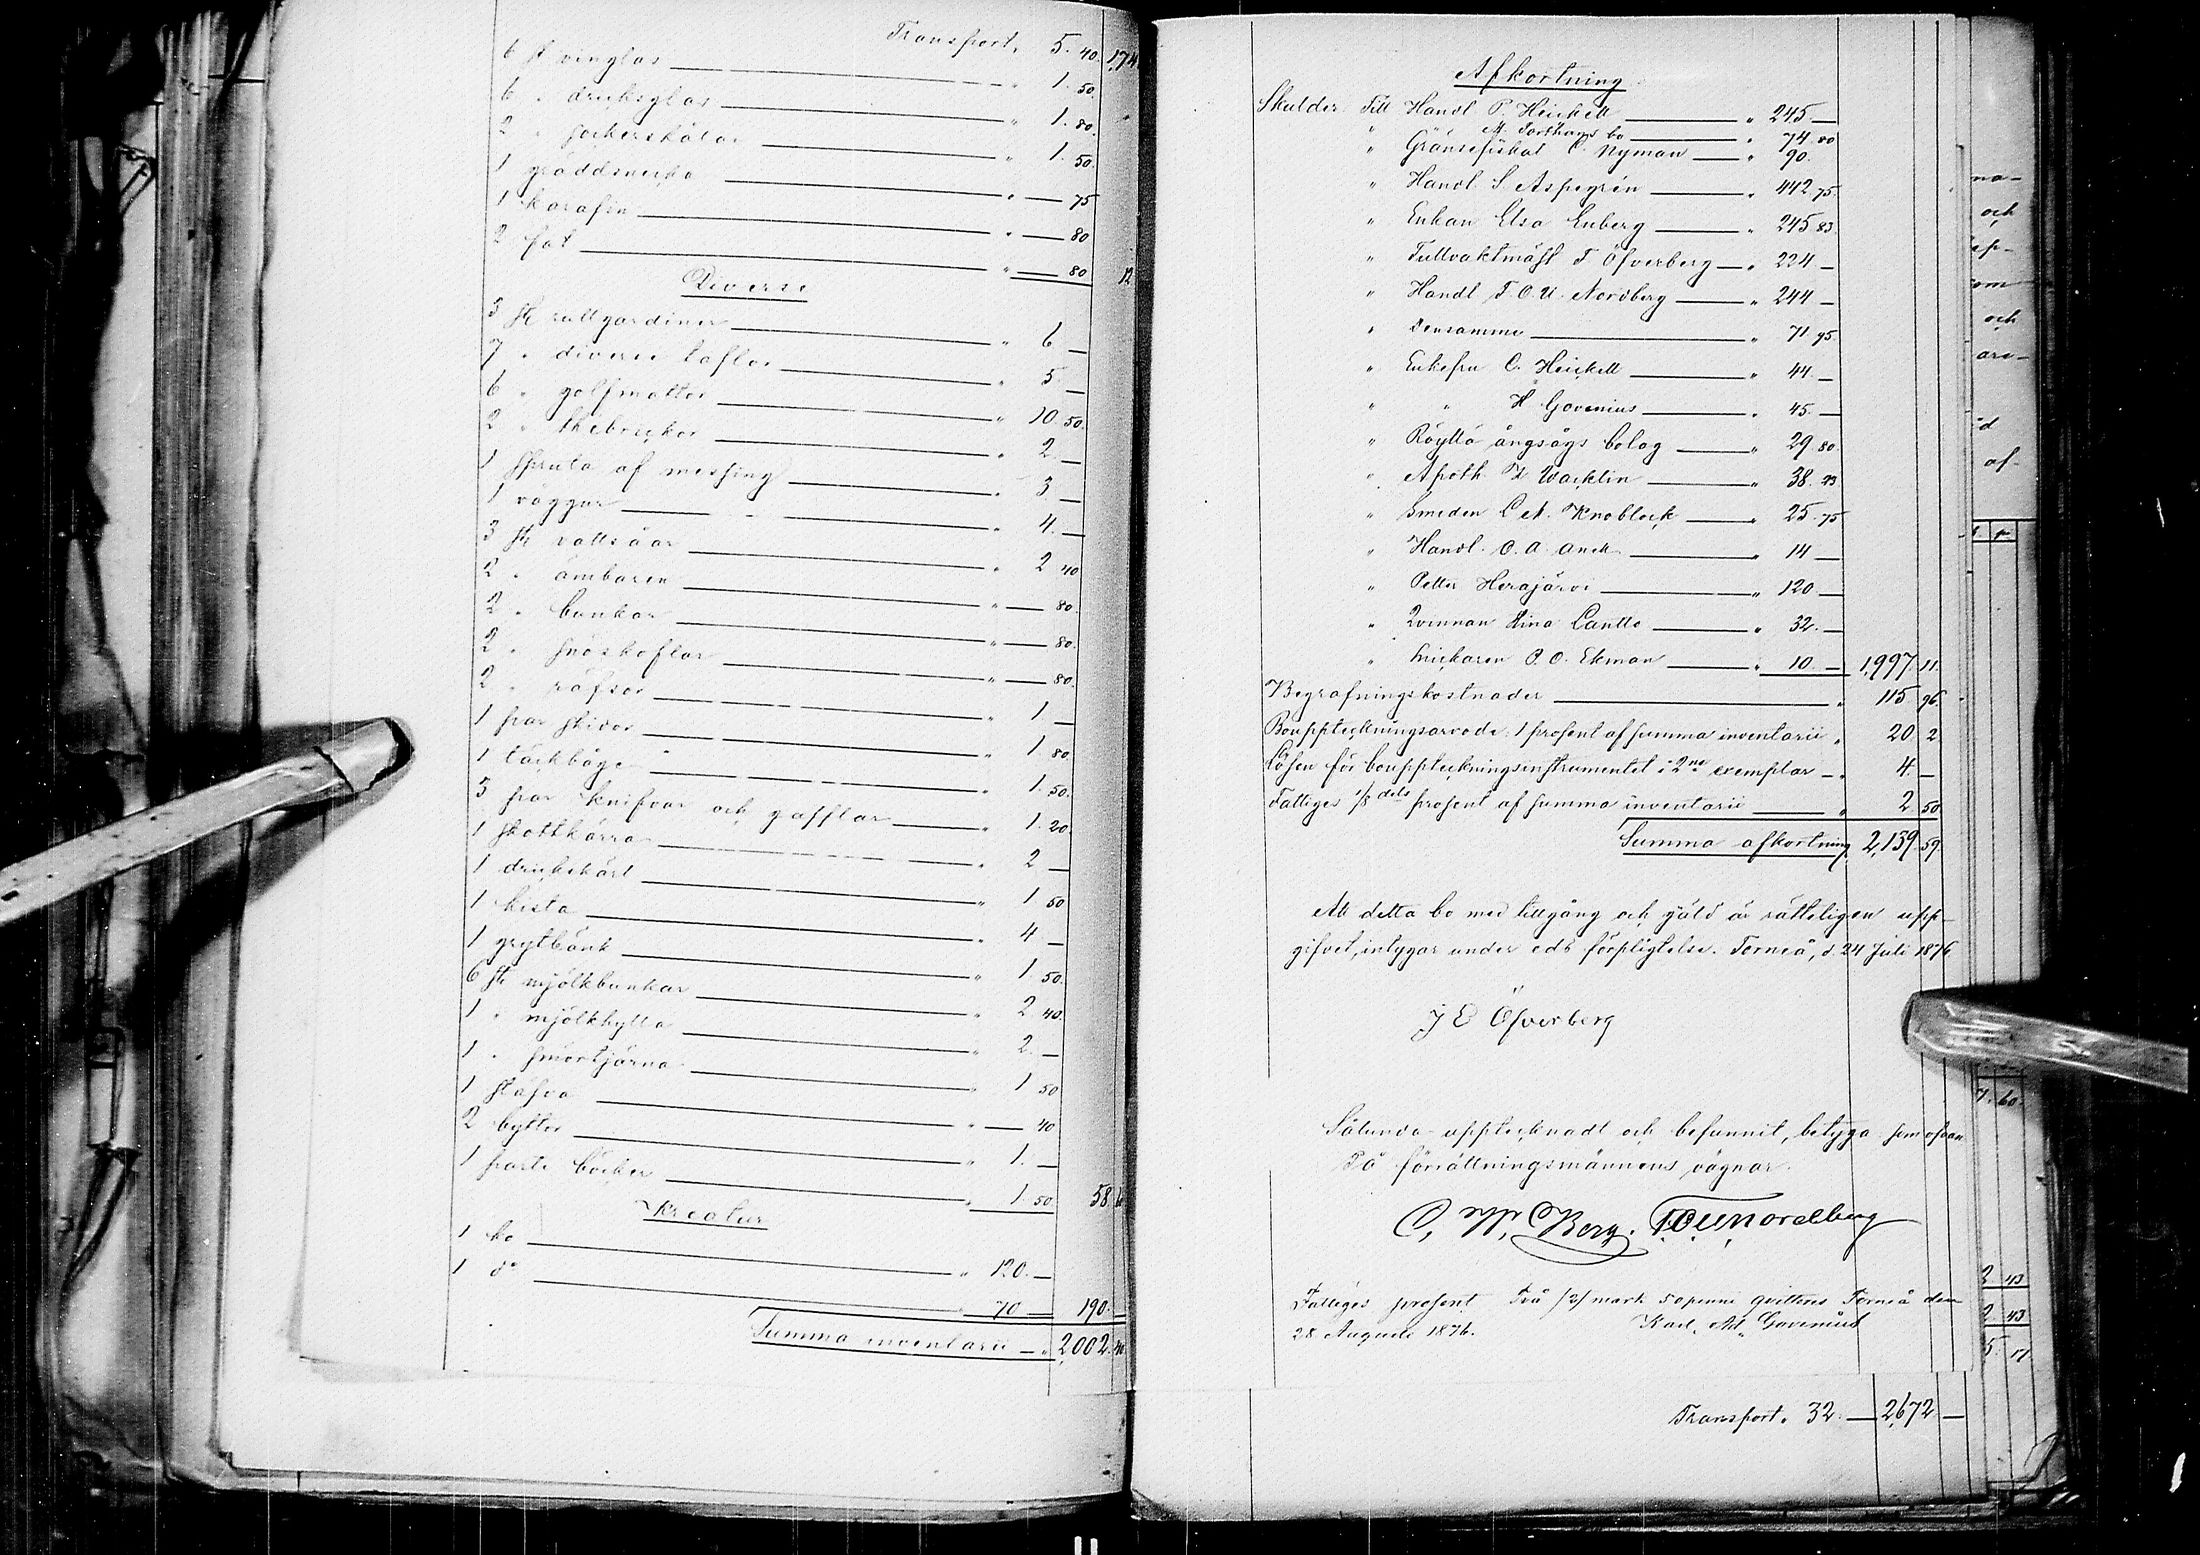 Transport, 5. 40. 1,74
6 st vinglas " 1. 50.
6 " dricksglas " 1. 80.
2 " sockerskålar " 1. 50.
1 gräddsnecka " — 75
1 karafin " — 80
2 fat " — 80 12
Diverse
3 st rullgardiner " 6 —
7 " diverse taflor " 5 —
6 " golfmattor " 10. 50.
2 " thebrickor " 2. —
1 spruta af messing " 3 —
1 vaggur " 4. —
3 st vattsåar " 2 40
2 " ämbaren " — 80.
2 " bunkar " — 80.
2 " snöskoflar " — 80.
2 " räfsor " 1 —
1 par skidor " 1 80
1 täckbåge " 1. 50.
3 par knifvar och gafflar " 1. 20
1 skottkärra " 2 —
1 drickskärl " 1 50
1 kista " 4 —
1 grytbänk " 1 50.
6 st mjölkbunkar " 2 40.
1 " mjölkhylla " 2. —
1 " smörtjärna " 1 50
1 stäfva " — 40
2 byttor " 1. —
1 parti böcker " 1. 50. 58.
Kreatur
1 ko " 120. —
1 d:o 70 — 190. —
Summa inventarii — " 2,002.
Afkortning
Skulder Till Handl P. Heickell " 245 —
" A. Porthans bo " 74 80
" Gränsefiskal C. Nyman " 90.
" Handl. S. Aspegrén " 442. 75.
" Enkan Elsa Enberg " 245. 83.
" Tullvaktmäst T Öfverberg " 224 —
" Handl T. O. U. Nordberg " 244 —
" Densamme " 71. 95.
" Enkefru C. Heickell " 44. —
" " H Govenius " 45. —
" Röyttä ångsågs bolag " 29. 80.
" Apoth. Z Wacklin " 38. 23
" Smeden C A. Knoblock " 25. 75
" Handl. O. A. Anck " 14 —
" Petter Herajärvi " 120 —
" Qvinnan Stina Cantto " 32. —
" Snickaren P. O. Ekman " 10. — 1,997. 11.
Begrafningskostnader " 115 96.
Bouppteckningsarvode: 1 prosent af summa inventarii " 20 2
Lösen för bouppteckningsinstrumentet i 2ne exemplar — " 4. —
Fattiges 1/8 dels prosent af summa inventarii " 2 50
Summa afkortning 2,139. 59.
Att detta bo med tillgång och gäld är rätteligen upp-
gifvet, intygar under eds förpligtelse. Torneå, d. 24 Juli 1876
J E Öfverberg
Sålunda upptecknadt och befunnit, betyga som ofvan
På förrättningsmännens vägnar.
C. W. Berg. T.O.U. Nordberg
Fattiges prosent Två /2/ mark 50 penni qvitteras Torneå den
28 Augusti 1876. Karl. Ad. Govenius
Transport. 32. — 2,672 —
na-
och
om
och
ars-
af
7. 60.
2 43
2. 43
5. 17